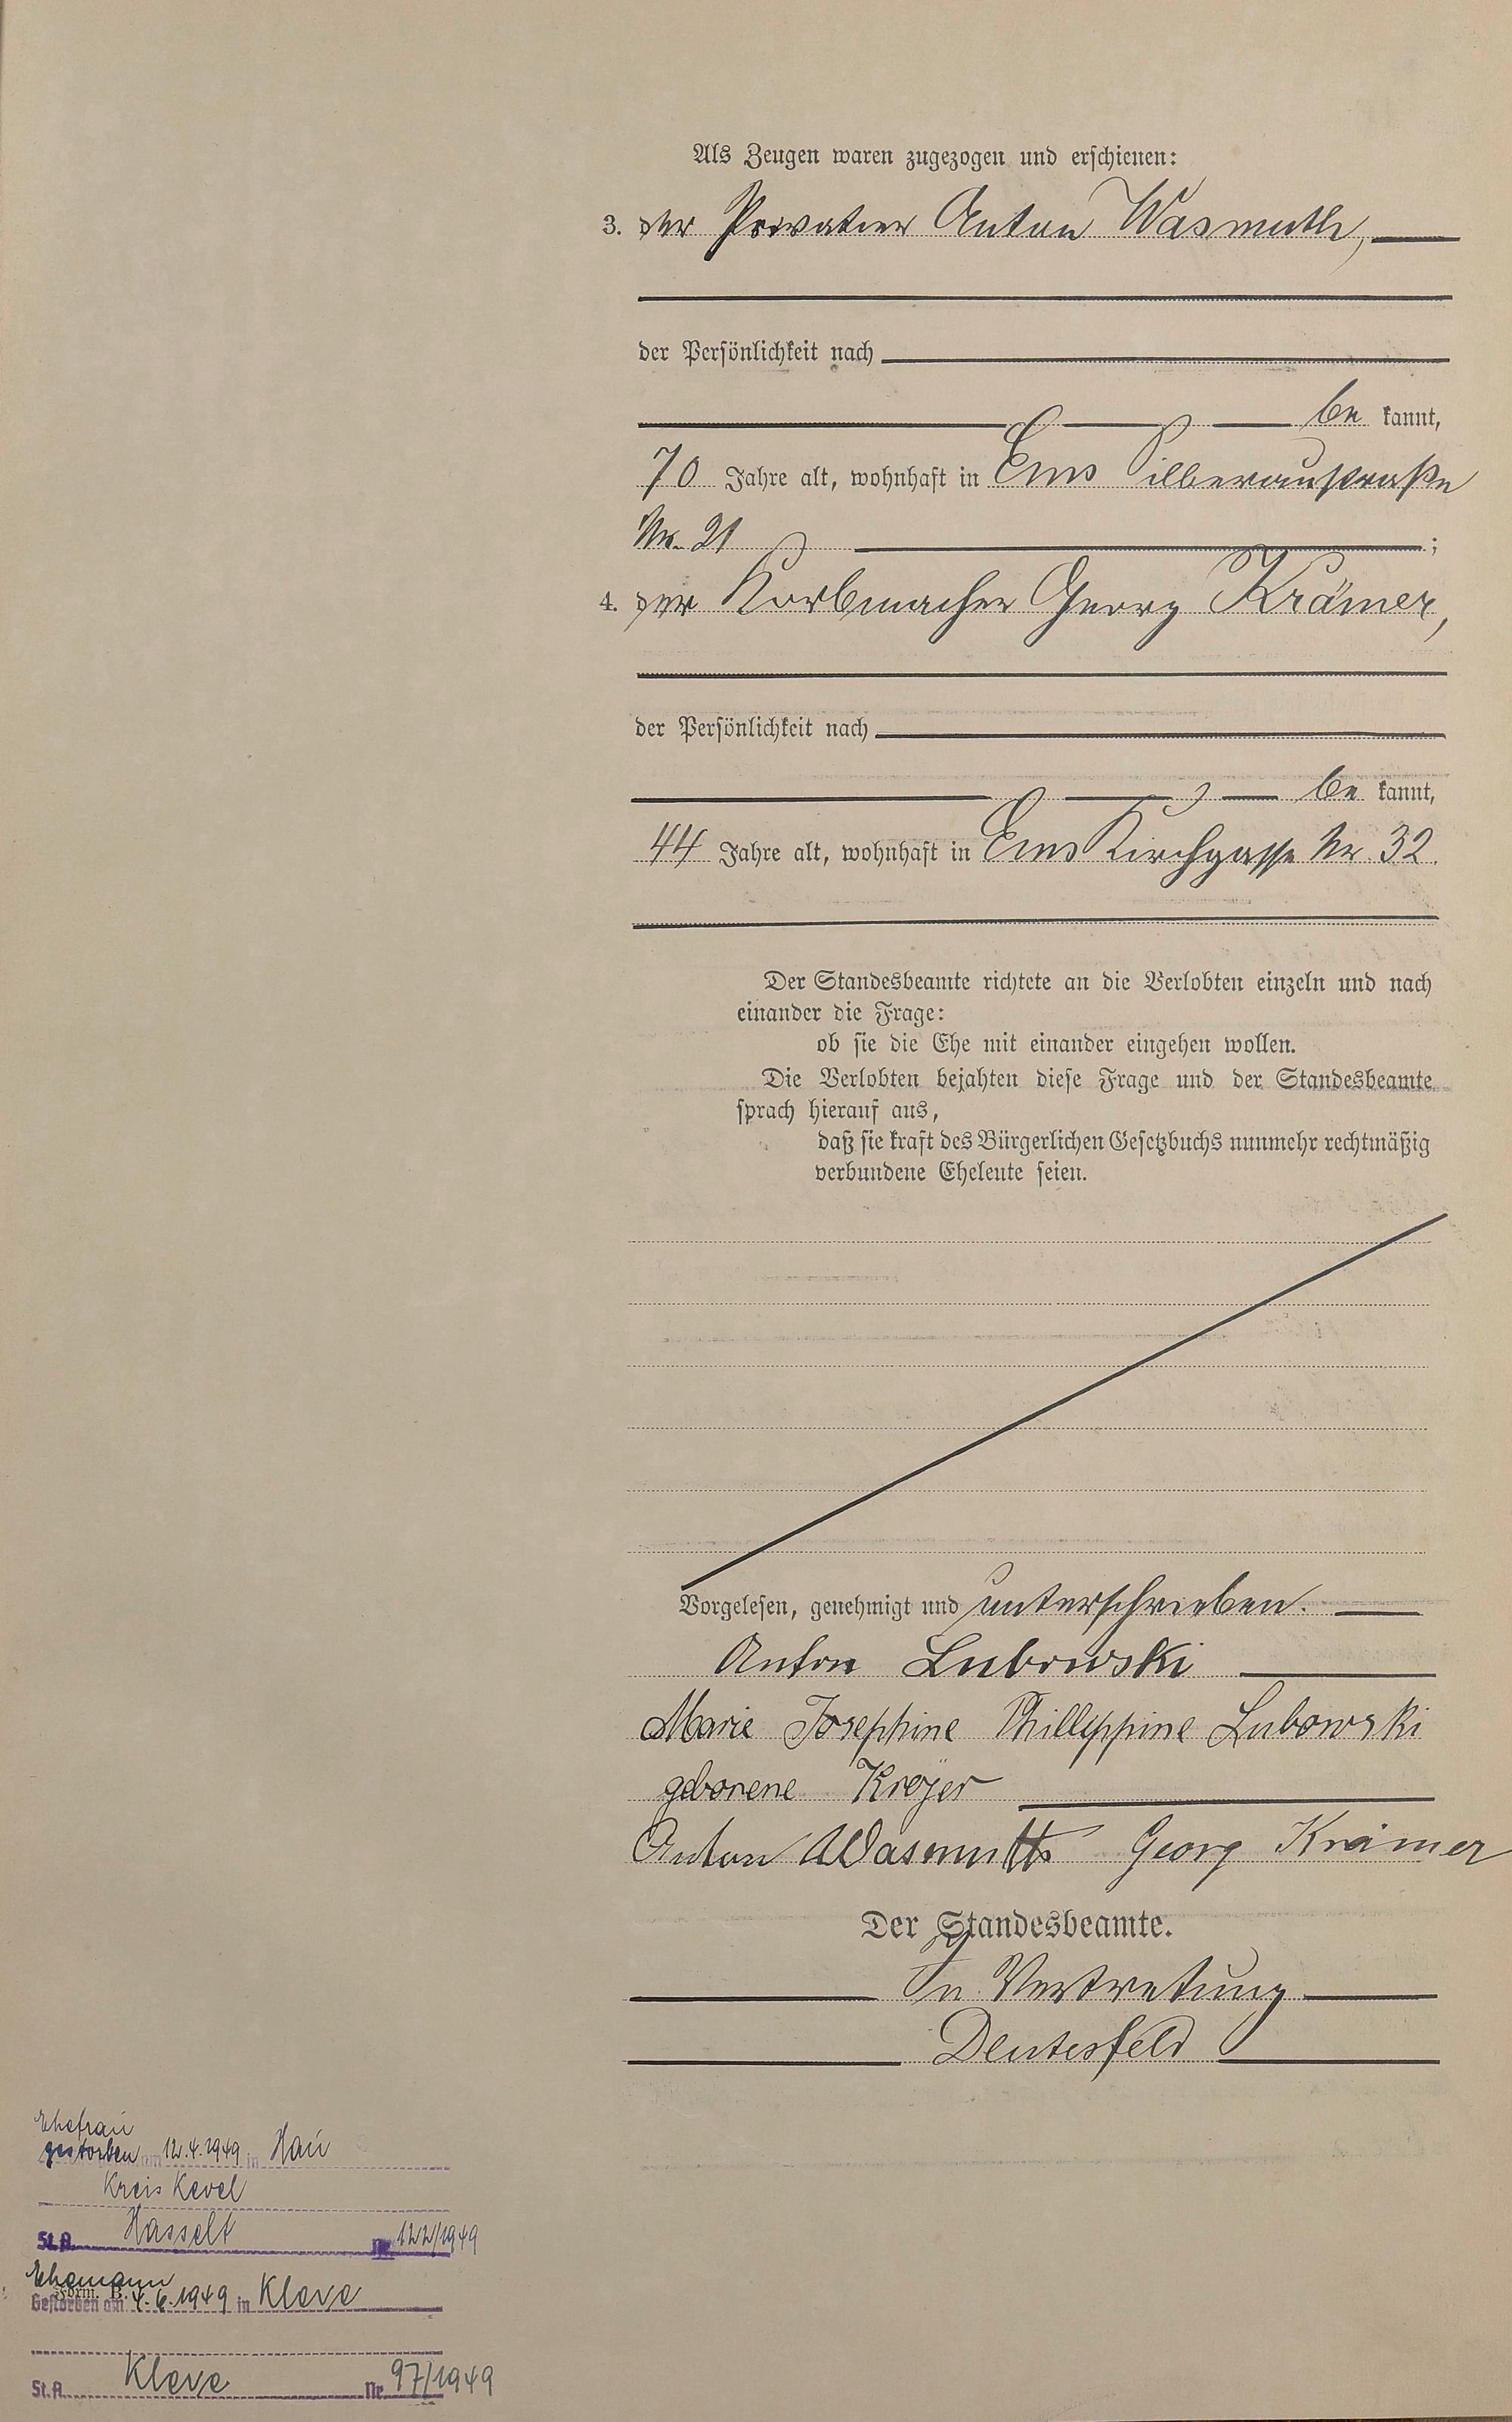 Als Zeugen waren zugezogen und erschienen:
3. der Privatier Anton Wasmuth,
der Persönlichkeit nach
be kannt,
70 Jahre alt, wohnhaft in Ems Silberaustraße
Nr. 21 ;
4. der Korbmacher Georg Krämer,
der Persönlichkeit nach
be kannt,
44 Jahre alt, wohnhaft in Ems Kirchgasse Nr. 32.
Der Standesbeamte richtete an die Verlobten einzeln und nach
einander die Frage:
ob sie die Ehe mit einander eingehen wollen.
Die Verlobten bejahten diese Frage und der Standesbeamte
sprach hierauf aus,
daß sie kraft des Bürgerlichen Gesetzbuchs nunmehr rechtmäßig
verbundene Eheleute seien.
Vorgelesen, genehmigt und unterschrieben.
Anton Lubowski
Marie Josephine Philleppine Lubowski
geborene Kröjer
Anton Wasmuth Georg Krämer
Der Standesbeamte.
In Vertretung
Deutesfeld
Ehefrau
gestorben am 12.4.1949 in Hau
Kreis Kevel
St.A. Hasselt Nr. 122/1949
Ehemann
Form. B.
Gestorben am 4.6.1949 in Kleve
St.A. Kleve Nr. 97/1949